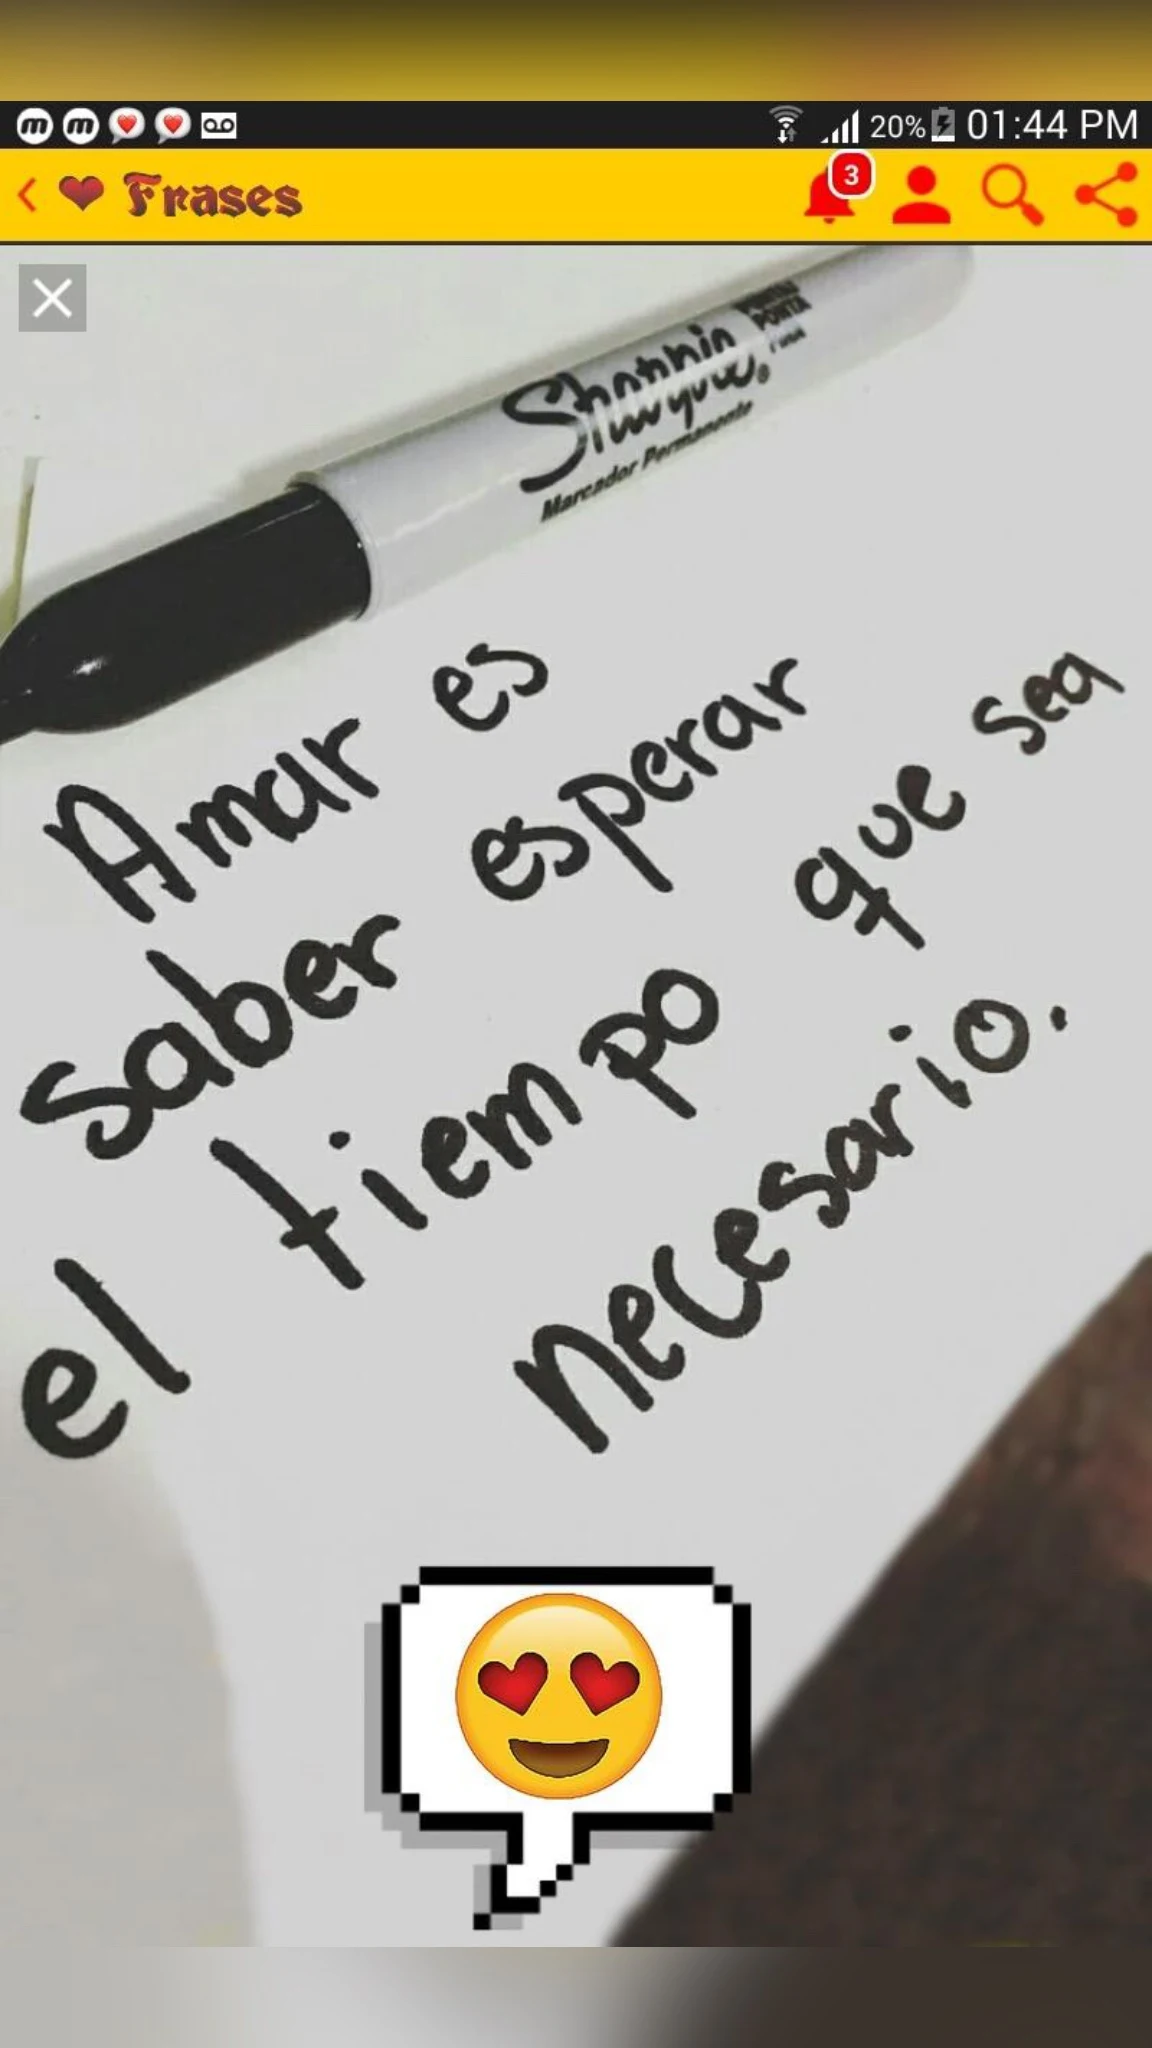 20% 01:44 PM
Frases
3
Sharpie®
Marcador Permanente
Amar es
saber esperar
el tiempo que sea
necesario.